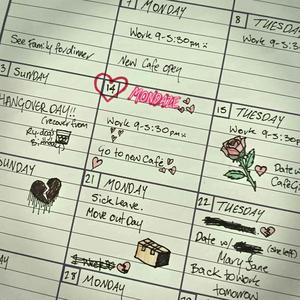 7 MONDAY
8 TUESDAY
Work 9-5:30pm
Work 9-5:30pm
See Family for dinner
New Cafe open
13 SUNDAY
14 MONDAY
15 TUESDAY
HANGOVER DAY!!
(recover from
Work 9-5:30pm
Go to new Cafe
Date w/
Cafe
SUNDAY
21 MONDAY
22 TUESDAY
Sick Leave.
Move Out Day
Date w/
(she left)
Mary Jane
Back to Work
tomorrow
28 MONDAY